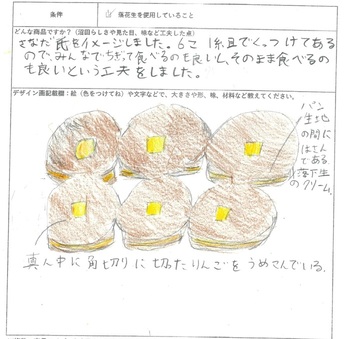 条件
落花生を使用していること
どんな商品ですか？（沼田らしさや見た目、味など工夫した点）
さなだ氏をイメージしました。6こ1組でくっつけてある
ので、みんなでちぎって食べるのも良いし、そのまま食べるの
も良いという工夫をしました。
デザイン画記載欄：絵（色をつけてね）や文字などで、大きさや形、味、材料など教えてください。
パン
生地
の間に
はさん
である
落花生
のクリーム。
真ん中に角切りに切ったりんごをうめこんでいる。